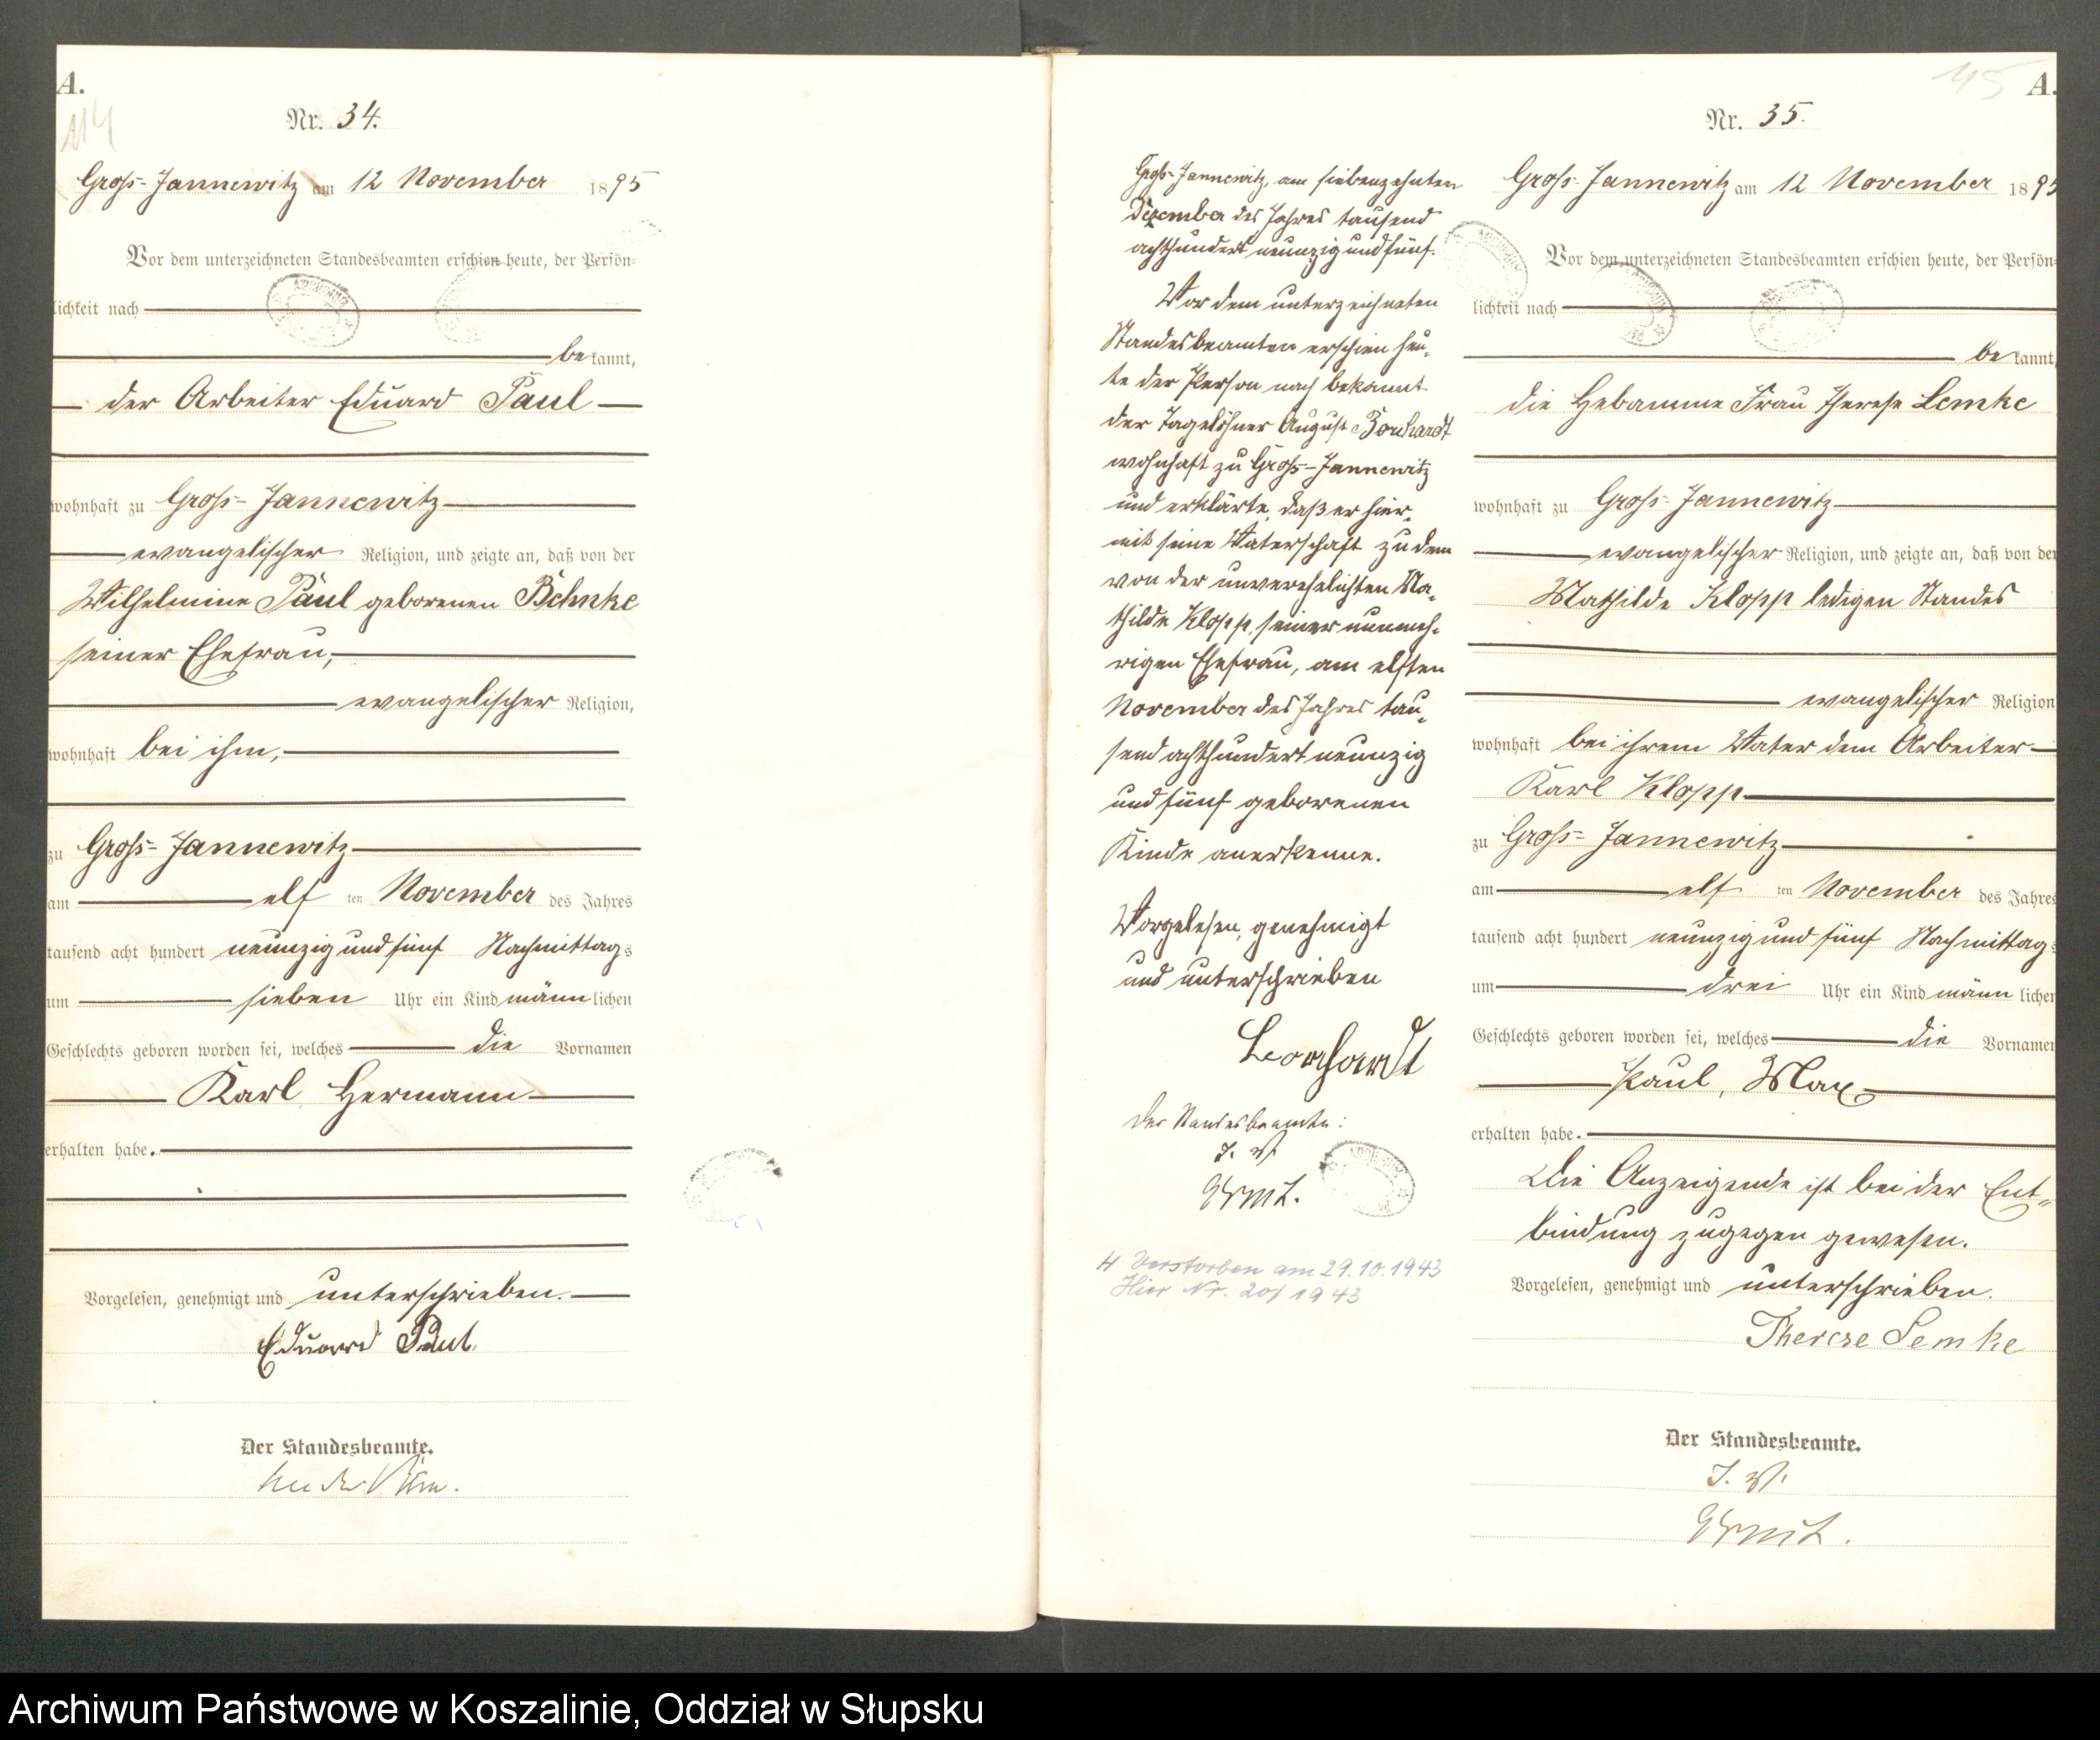 A.
114
Nr. 34.
Groß-Jannewitz am 12 November 1895
Vor dem unterzeichneten Standesbeamten erschien heute, der Persön-
lichkeit nach
bekannt,
der Arbeiter Eduard Paul
wohnhaft zu Groß-Jannewitz
evangelischer Religion, und zeigte an, daß von der
Wilhelmine Paul geborenen Behnke
seiner Ehefrau,
evangelischer Religion,
wohnhaft bei ihm,
zu Groß-Jannewitz
am elf ten November des Jahres
tausend acht hundert neunzig und fünf Nachmittags
um sieben Uhr ein Kind männlichen
Geschlechts geboren worden sei, welches die Vornamen
Karl Hermann
erhalten habe.
Vorgelesen, genehmigt und unterschrieben.
Eduard Paul.
Der Standesbeamte.
Groß-Jannewitz, am siebenzehnten
Dezember des Jahres tausend
achthundert neunzig und fünf.
Vor dem unterzeichneten
Standesbeamten erschien heu-
te der Person nach bekannt
der Tagelöhner August Borchardt
wohnhaft zu Groß-Jannewitz
und erklärte, daß er hier-
mit seine Vaterschaft zu dem
von der unverehelichten Ma-
thilde Klopp, seiner nunmeh-
rigen Ehefrau, am elften
November des Jahres tau-
send achthundert neunzig
und fünf geborenen
Kinde anerkenne.
Vorgelesen, genehmigt
und unterschrieben
Borchardt
Der Standesbeamte:
J. V.
H Verstorben am 29.10.1943
Hier Nr. 20/1943
45
A.
Nr. 35.
Groß-Jannewitz am 12 November 1895
Vor dem unterzeichneten Standesbeamten erschien heute, der Persön-
lichkeit nach
bekannt,
die Hebamme Frau Therese Lemke
wohnhaft zu Groß-Jannewitz
evangelischer Religion, und zeigte an, daß von der
Mathilde Klopp ledigen Standes
evangelischer Religion
wohnhaft bei ihrem Vater dem Arbeiter
Karl Klopp
zu Groß-Jannewitz
am elf ten November des Jahres
tausend acht hundert neunzig und fünf Nachmittags
um drei Uhr ein Kind männlichen
Geschlechts geboren worden sei, welches die Vornamen
Paul, Max
erhalten habe.
Die Anzeigende ist bei der Ent-
bindung zugegen gewesen.
Vorgelesen, genehmigt und unterschrieben.
Therese Lemke
Der Standesbeamte.
J. V.
Archiwum Państwowe w Koszalinie, Oddział w Słupsku